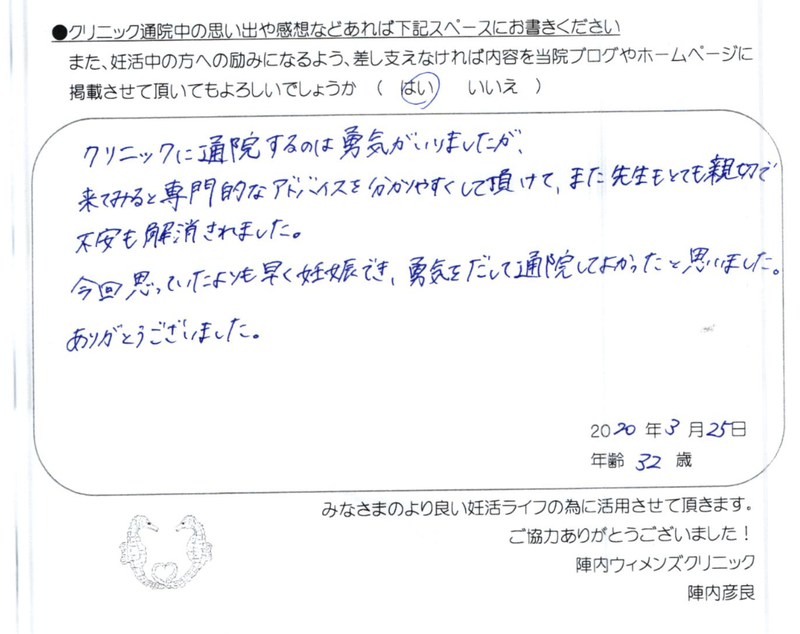 ●クリニック通院中の思い出や感想などあれば下記スペースにお書きください
また、妊活中の方への励みになるよう、差し支えなければ内容を当院ブログやホームページに
掲載させて頂いてもよろしいでしょうか （ はい いいえ ）
クリニックに通院するのは勇気がいりましたが、
来てみると専門的なアドバイスを分かりやすくして頂けて、また先生もとても親切で
不安も解消されました。
今回思っていたよりも早く妊娠でき、勇気をだして通院してよかったと思いました。
ありがとうございました。
2020 年 3 月 25日
年齢 32 歳
みなさまのより良い妊活ライフの為に活用させて頂きます。
ご協力ありがとうございました！
陣内ウィメンズクリニック
陣内彦良